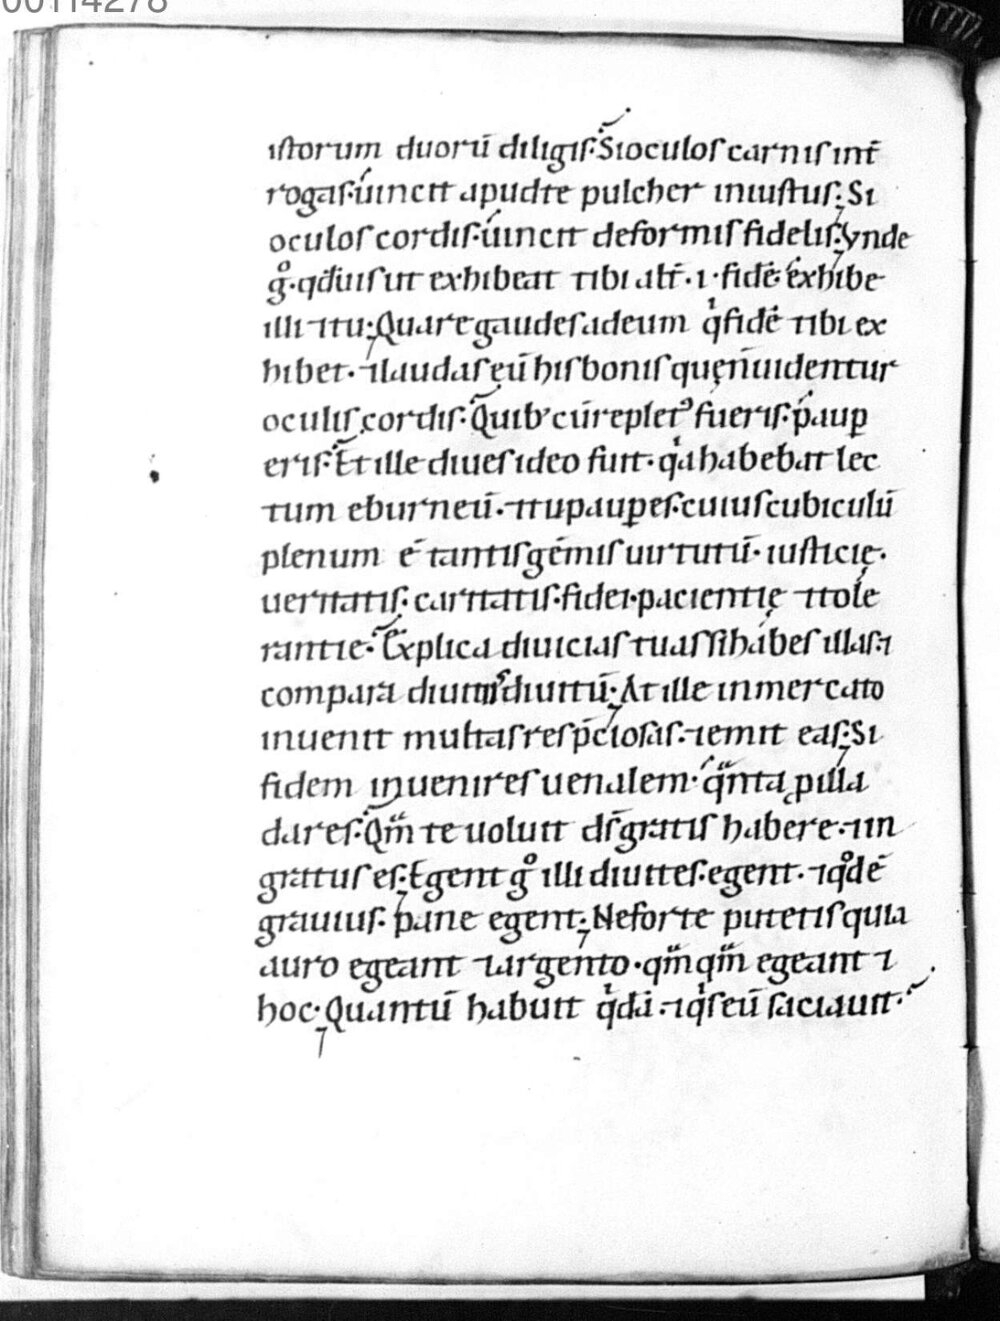 00114278
istorum duorū diligis. Si oculos carnis int̄
rogas. uincit apud te pulcher iniustus; Si
oculos cordis. uincit deformis fidelis; Vnde
gͦ. qđ uis ut exhibeat tibi alt̄. i. fidē. exhibe
illi ⁊ tu; Quare gaudes ad eum qͥ fidē tibi ex
hibet. ⁊ laudas eū his bonis quę n̄ uidentur
oculis cordis. Quibꝰ cū repletꝰ fueris. paup̱
eris. Et ille diues ideo fuit. qͣa habebat lec
tum eburneū. ⁊ tu paup̱ es. cuius cubiculū
plenum ē tantis gēmis uirtutū. iusticię.
ueritatis. caritatis. fidei. pacientię ⁊ tole
rantie. Explica diuicias tuas si habes illas. ⁊
compara diuitiis diuitū; At ille in mercato
inuenit multas res p̄ciosas. ⁊ emit eas; Si
fidem inuenires uenalem. qͣnta p illa
dares. Qm̄ te uoluit ds̄ gratis habere. ⁊ in
gratus es; Egent gͦ illi diuites. egent. ⁊ qͦdē
grauius. pane egent; Ne forte putetis quia
auro egeant ⁊ argento. qm̄qm̄ egeant ⁊
hoc; Quantū habuit qͥdā. ⁊ qͥs eū saciauit.